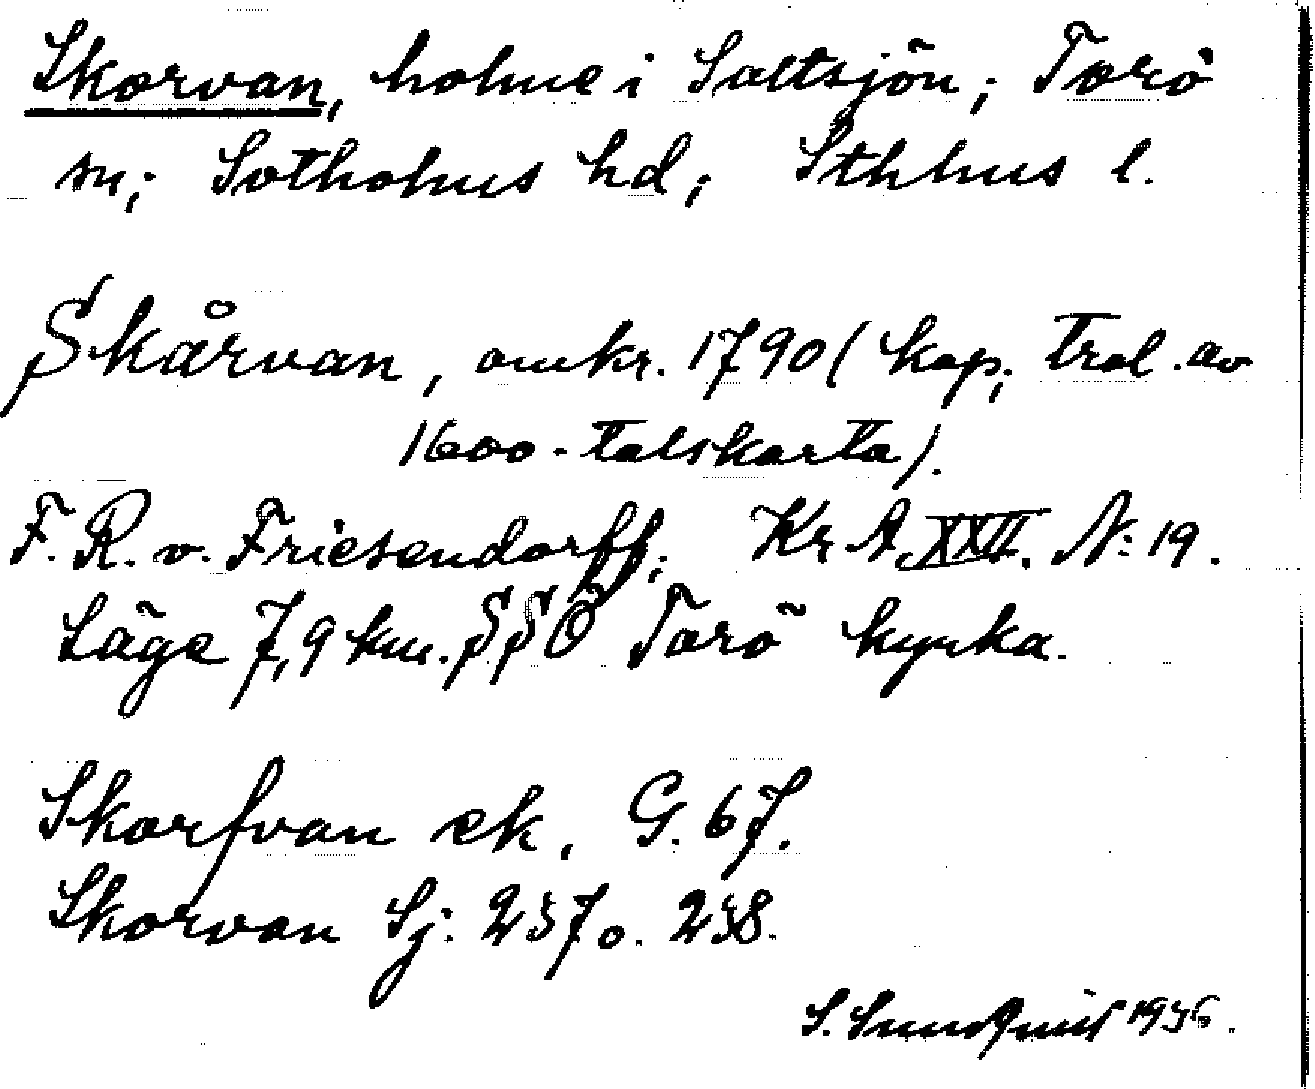 Skorvan, holme i Saltsjön; Torö
sn; Sotholms hd; Sthlms l.
Skårvan, omkr. 1790 (kop; trol. av
1600-talskarta).
F. R. v. Friesendorff; Kr A. XXII. N: 19.
Läge 7,9 km. SSÖ Torö kyrka.
Skorfvan ek. G. 67.
Skorvan Sj: 237 o. 238.
S. Sundquist 1936.